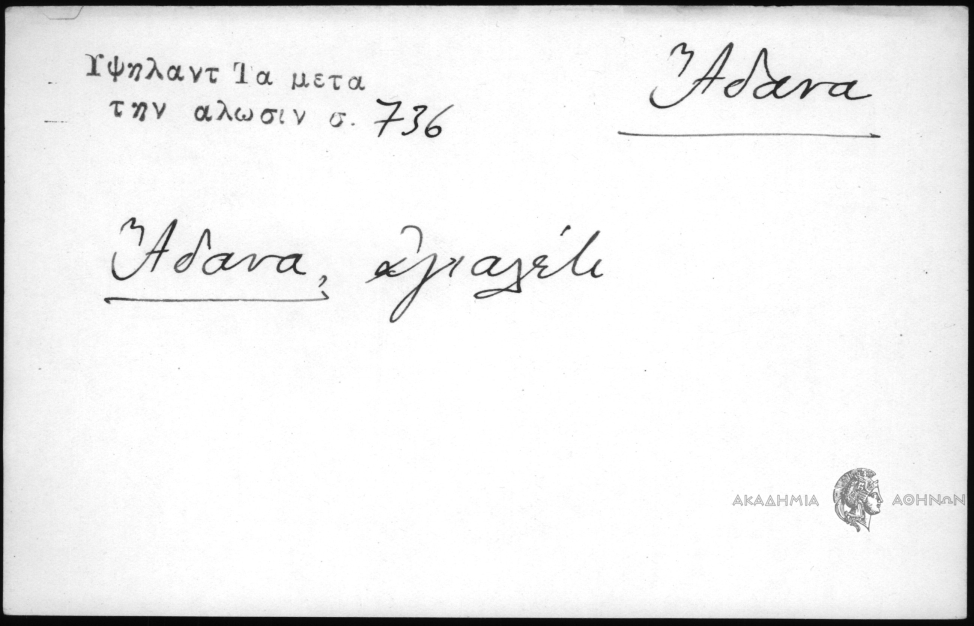 Υψηλαντ Τα μετα
την αλωσιν σ. 736
Ἄδανα
Ἄδανα, ἐγιαλέτι
ΑΚΑΔΗΜΙΑ ΑΘΗΝΩΝ